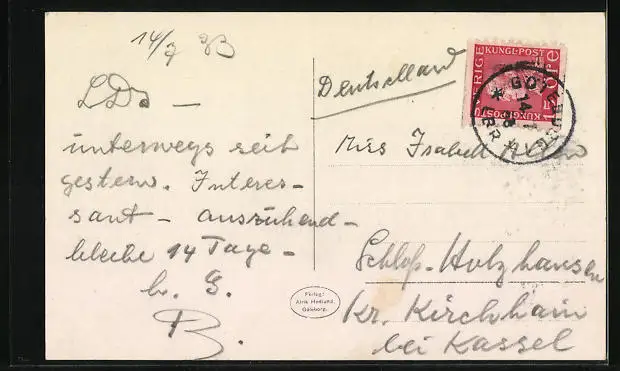 14/7 33
LD. —
unterwegs seit
gestern. Interes-
sant — ausruhend —
bleibe 14 Tage —
h. G.
B.
Deutschland
Miss Isabell
Schloß-Holzhausen
Kr. Kirchhain
bei Kassel
SVERIGE KUNGL-POST
15 ÖRE
KUNGL.POST
GÖTEBORG
14 7
Förlag:
Alrik Hedlund,
Göteborg.